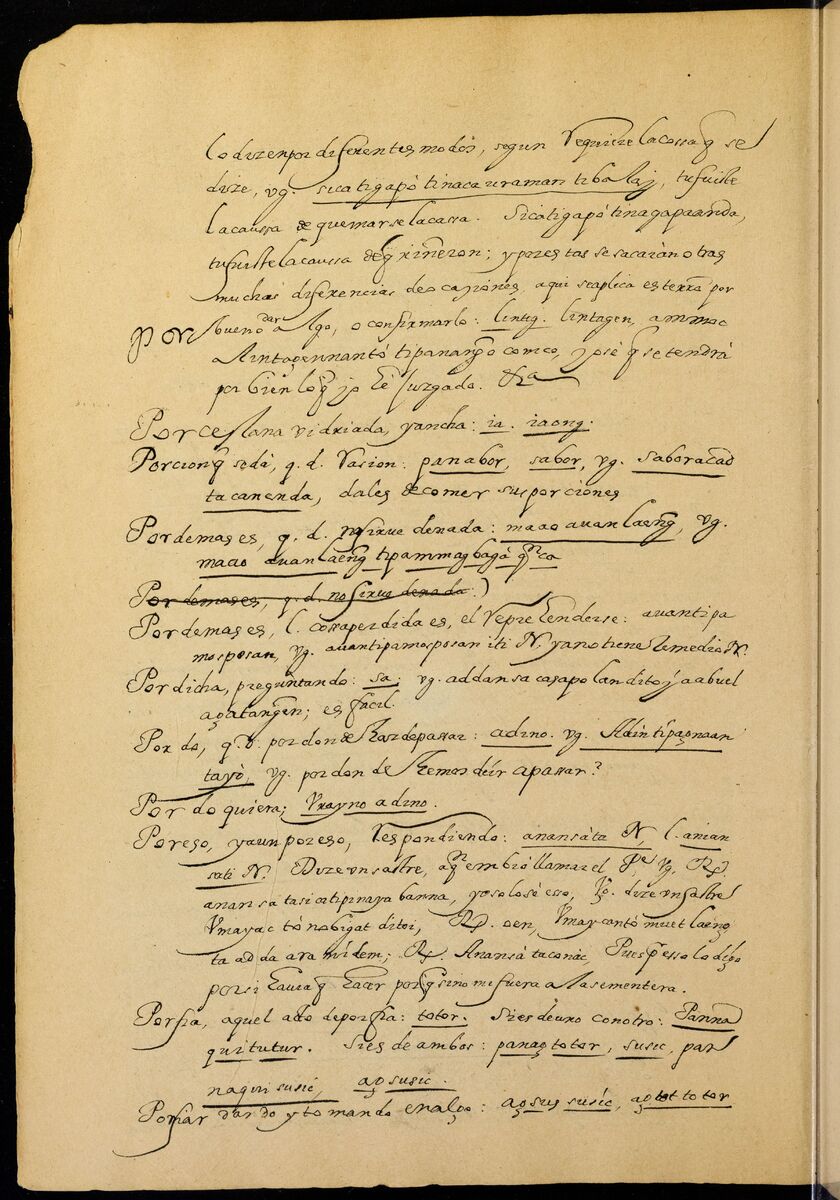 lo dizen por diferentes modos, segun requiere la cossa q̃ se
dize, vg. sicatigapó tinaca uraman tibalaj, tu fuiste
la caussa de quemarse la cassa. Sicatigapó tinagapaanda,
tu fuiste la caussa de q̃ riñeron; y por estas se sacaràn otras
muchas diferencias de ocasiones, aqui se aplica
POR bueno dar algo, o confirmarlo: lintig. lintagen, ammoc
Alintagennantó tipanangõ comco, jo sè q̃ se tendrà
por bien lo q̃ jo hé juzgado. &ra
Porcelana vidriada, yancha: ia. iaong.
Porcion q̃ se dà, q. d. rasion: panabor, sabor, vg. saboracad
tacanenda, dales de comer sus porciones
Por demas es, q. d. no sirue de nada: maao auan laeng̃, vg.
maao auan laeng̃ tipammagbagá
Por demas es, q. d. no sirue de nada:)
Por demas es, l. cossa perdida es, el reprehenderse: auantipa
mosposan, vg. auantipamosposan iti N. ya no tiene remedio N.
Por dicha, preguntando: sa: vg. addansa
es facil.
Por do, q. d. por donde has de passar: adino. vg. Adin tipagnaan
tayò, vg. por donde hemos de ir a passar?
Por do quiera; Vrayno adino.
Por eso, y aun por eso, respondiendo: anansáta N, l. anian
sati N. Dize vn sastre, a embió llamar el Pe, vg. R.
anansa tasi yo solo sé esso, dize vn sastre
Vmayac tó nobigat ditoi, R. oen, Vmaycantó
R. Anansá taconàc, Pues p̃ esso lo digo
por si hauia q̃ hacer por q̃ sino me fuera a la sementera.
Porfia, aquel acto de porfia: totor. Si es de uno con otro: Panna
quitutur. Si es de ambos: panag̃totor, susic, pan
naquisusic, ag̃susic.
Porfiar dando y tomando en algo: ag̃sussusic, ag̃tottotor